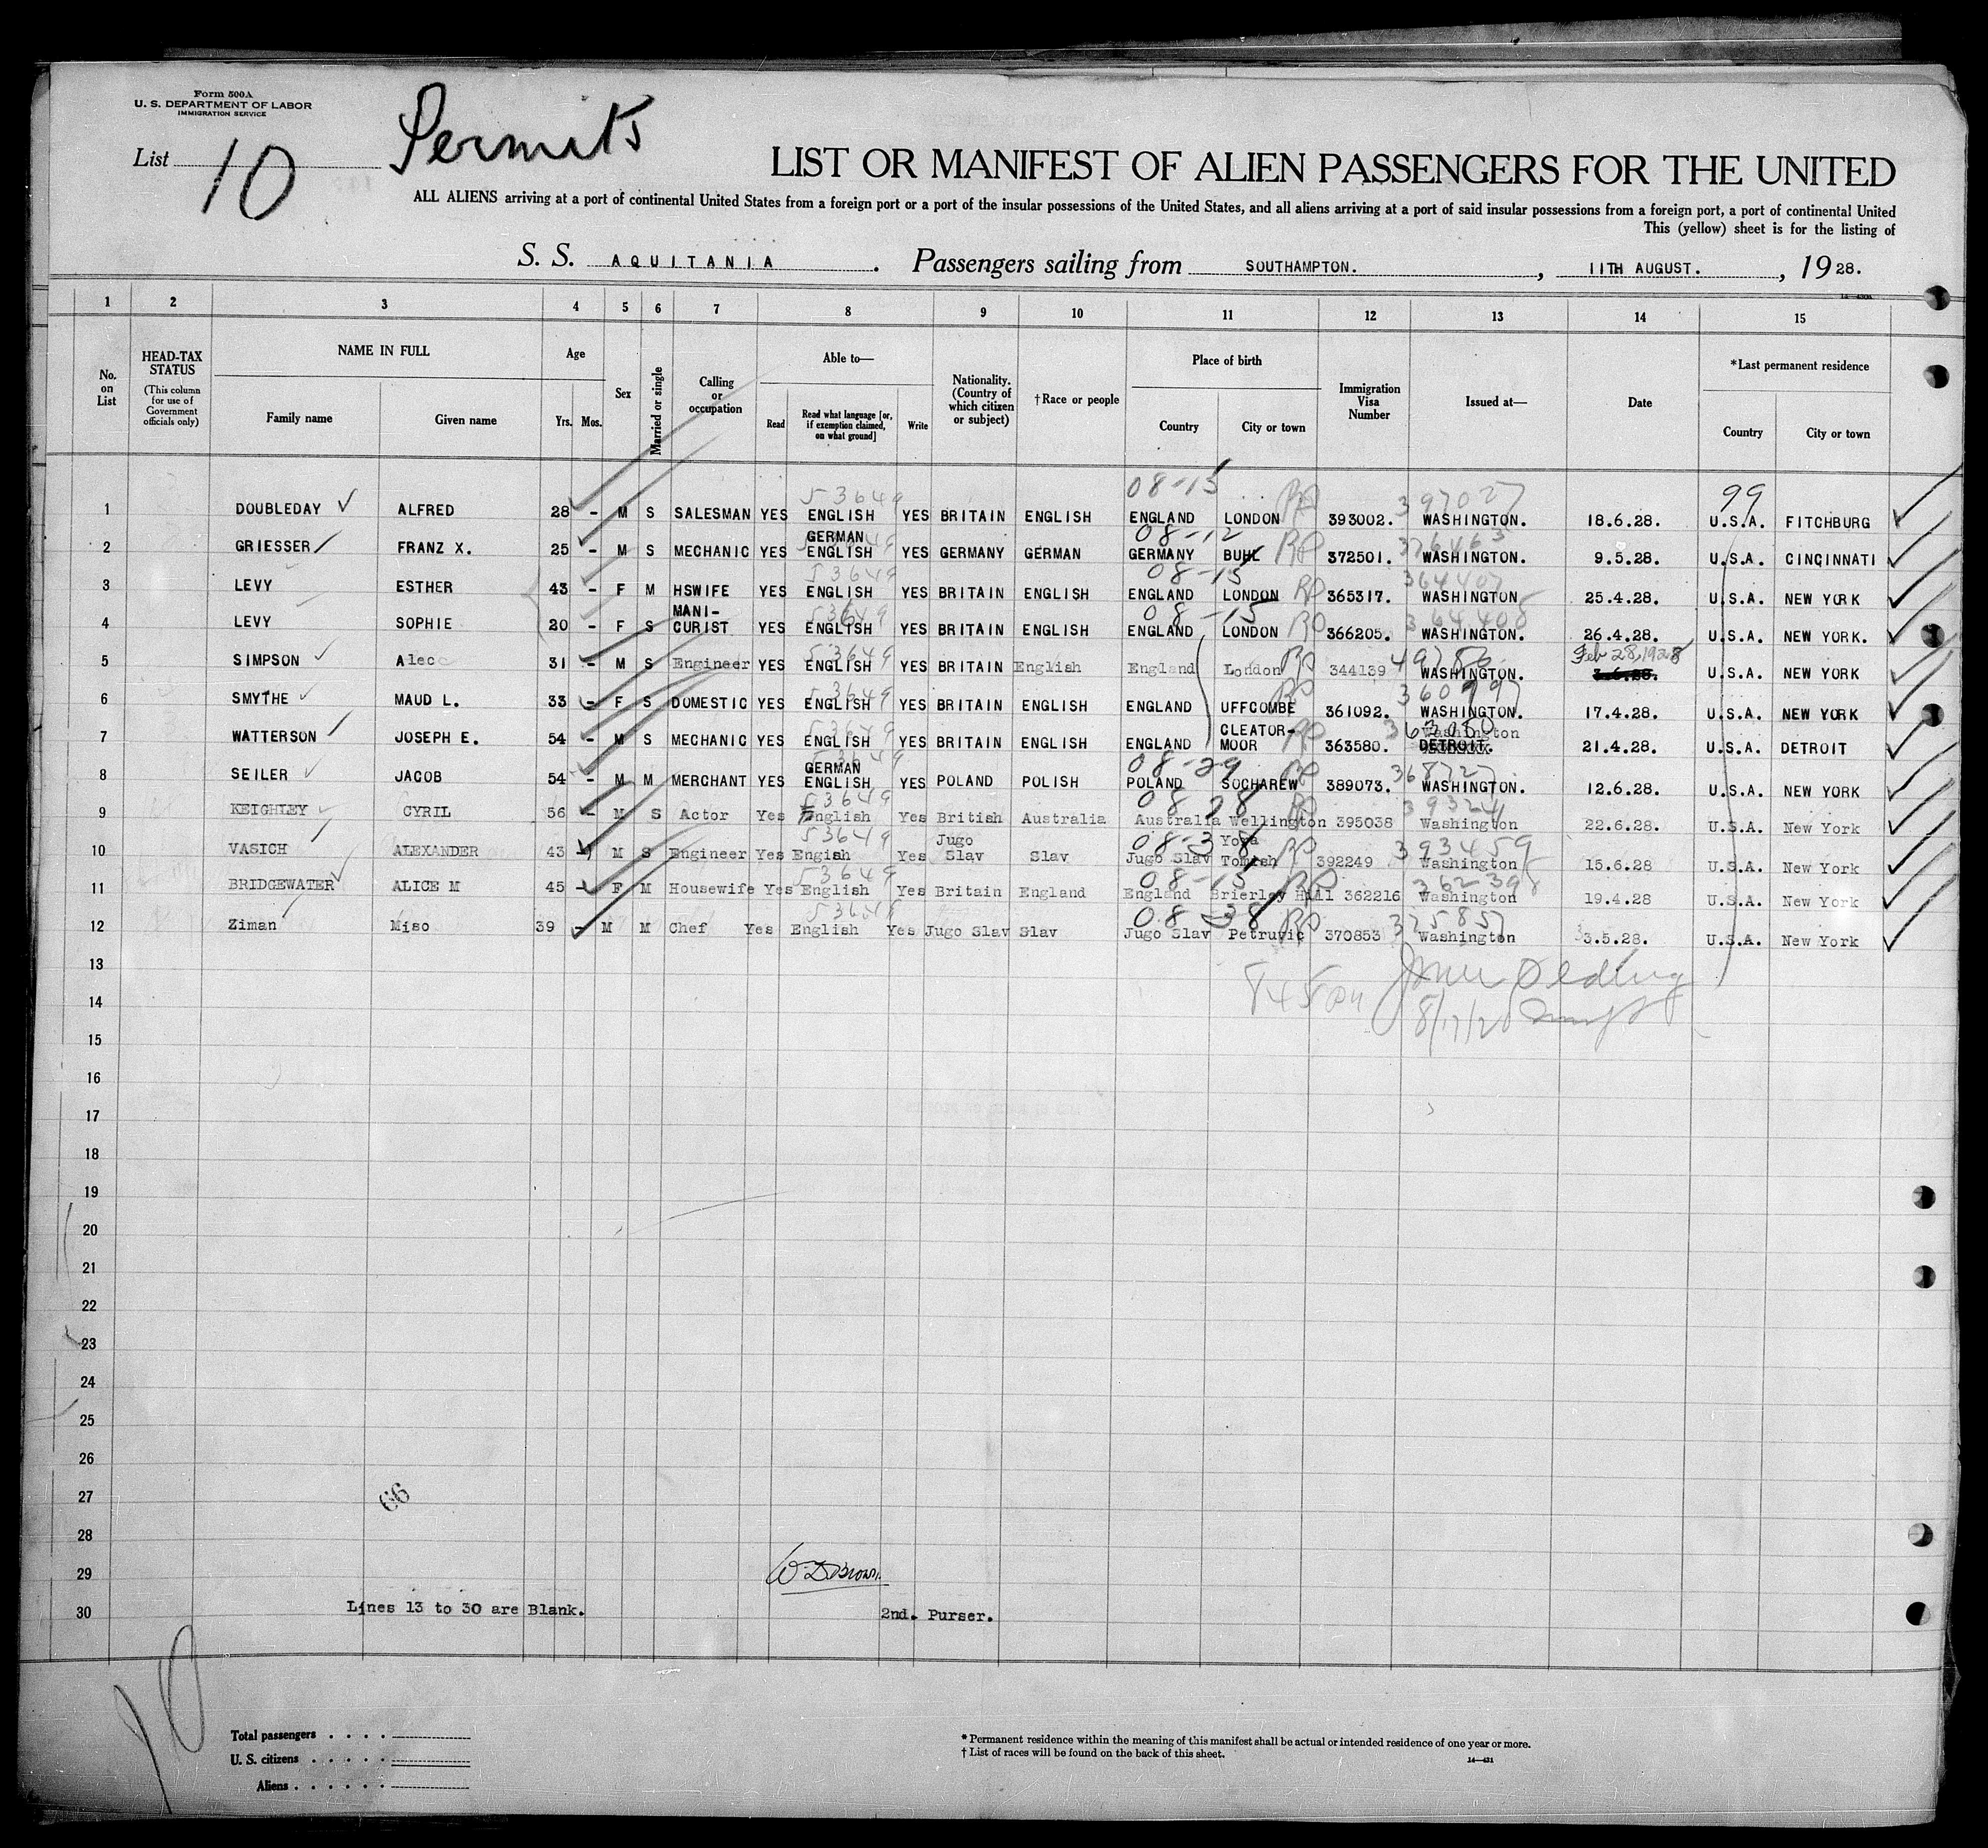 Form 500A
U. S. DEPARTMENT OF LABOR
IMMIGRATION SERVICE
List 10 Permits
LIST OR MANIFEST OF ALIEN PASSENGERS FOR THE UNITED
ALL ALIENS arriving at a port of continental United States from a foreign port or a port of the insular possessions of the United States, and all aliens arriving at a port of said insular possessions from a foreign port, a port of continental United
This (yellow) sheet is for the listing of
S. S. AQUITANIA. Passengers sailing from SOUTHAMPTON., 11TH AUGUST., 1928.
1 2 3 4 5 6 7 8 9 10 11 12 13 14 15
No. on List
HEAD-TAX STATUS
(This column for use of Government officials only)
NAME IN FULL
Family name Given name
Age
Yrs. Mos.
Sex
Married or single
Calling or occupation
Able to—
Read
Read what language [or, if exemption claimed, on what ground]
Write
Nationality. (Country of which citizen or subject)
†Race or people
Place of birth
Country City or town
Immigration Visa Number
Issued at—
Date
*Last permanent residence
Country City or town
53649 08-15 397027 99
1 DOUBLEDAY ALFRED 28 - M S SALESMAN YES ENGLISH YES BRITAIN ENGLISH ENGLAND LONDON 393002. WASHINGTON. 18.6.28. U.S.A. FITCHBURG
08-12
2 GRIESSER FRANZ X. 25 - M S MECHANIC YES GERMAN ENGLISH YES GERMANY GERMAN GERMANY BUHL 372501. WASHINGTON. 9.5.28. U.S.A. CINCINNATI
53649 08-15 364407
3 LEVY ESTHER 43 - F M HSWIFE YES ENGLISH YES BRITAIN ENGLISH ENGLAND LONDON 365317. WASHINGTON 25.4.28. U.S.A. NEW YORK
53649 08-15 364408
4 LEVY SOPHIE 20 - F S MANI-CURIST YES ENGLISH YES BRITAIN ENGLISH ENGLAND LONDON 366205. WASHINGTON. 26.4.28. U.S.A. NEW YORK.
53649 49786 Feb 28, 1928
5 SIMPSON Alec 31 - M S Engineer YES ENGLISH YES BRITAIN English England London 344139 WASHINGTON. 3.6.28. U.S.A. NEW YORK
53649 360997
6 SMYTHE MAUD L. 33 - F S DOMESTIC YES ENGLISH YES BRITAIN ENGLISH ENGLAND UFFCOMBE 361092. WASHINGTON. 17.4.28. U.S.A. NEW YORK
53649 363050 Washington
7 WATTERSON JOSEPH E. 54 - M S MECHANIC YES ENGLISH YES BRITAIN ENGLISH ENGLAND CLEATOR-MOOR 363580. DETROIT. 21.4.28. U.S.A. DETROIT
53649 08-29 368727
8 SEILER JACOB 54 - M M MERCHANT YES GERMAN ENGLISH YES POLAND POLISH POLAND SOCHAREW 389073. WASHINGTON. 12.6.28. U.S.A. NEW YORK
53649 08 28
9 KEIGHLEY CYRIL 56 - M S Actor Yes English Yes British Australia Australia Wellington 395038 Washington 22.6.28. U.S.A. New York
53649 08-38 393459
10 VASICH ALEXANDER 43 - M S Engineer Yes Engish Yes Jugo Slav Slav Jugo Slav Tomish 392249 Washington 15.6.28 U.S.A. New York
53649 08-15 362398
11 BRIDGEWATER ALICE M 45 - F M Housewife Yes English Yes Britain England England Brierley Hill 362216 Washington 19.4.28 U.S.A. New York
53649 08-38 375857
12 Ziman Miso 39 - M M Chef Yes English Yes Jugo Slav Slav Jugo Slav Petruvic 370853 Washington 3.5.28. U.S.A. New York
13
14
15
16
17
18
19
20
21
22
23
24
25
26
27
66
28
29
30 Lines 13 to 30 are Blank. 2nd. Purser.
10
Total passengers
U. S. citizens
Aliens
* Permanent residence within the meaning of this manifest shall be actual or intended residence of one year or more.
† List of races will be found on the back of this sheet.
14—431